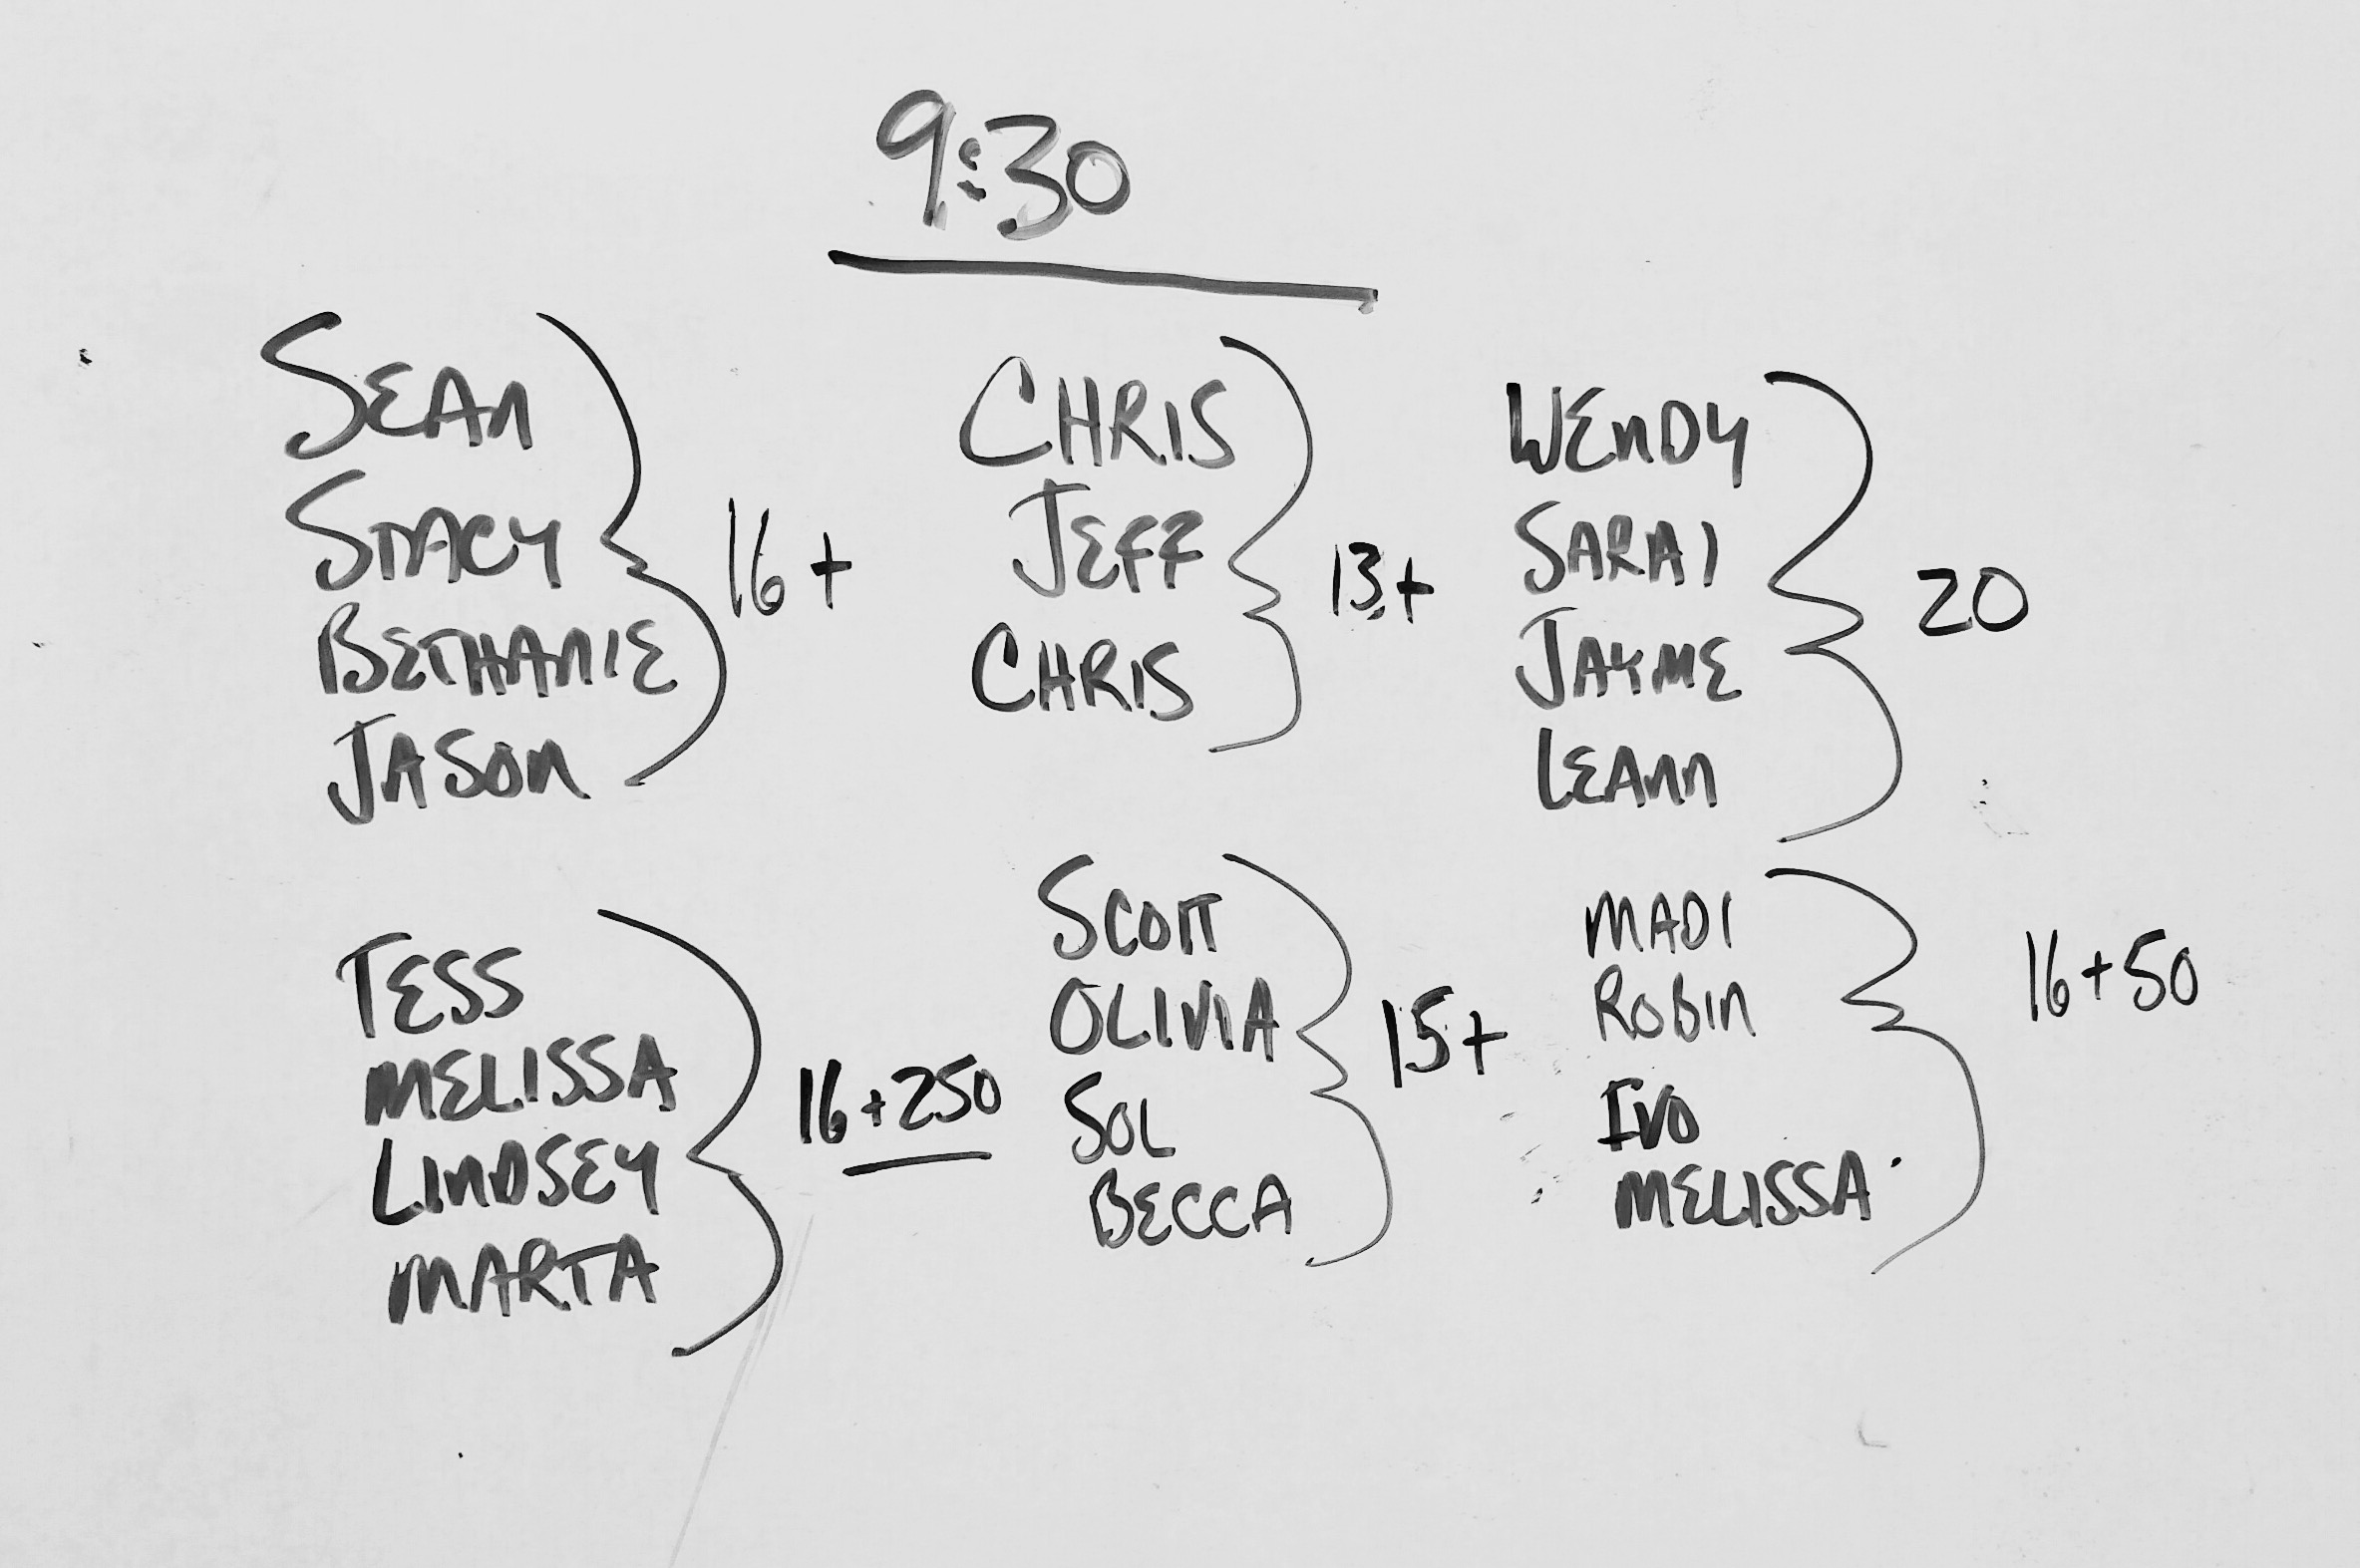 9:30
SEAN
STACY
BETHANIE
JASON
16+
CHRIS
JEFF
CHRIS
13+
WENDY
SARAI
JAYME
LEANN
20
TESS
MELISSA
LINDSEY
MARTA
16+250
SCOTT
OLIVIA
SOL
BECCA
15+
MADI
ROBIN
IVO
MELISSA
16+50